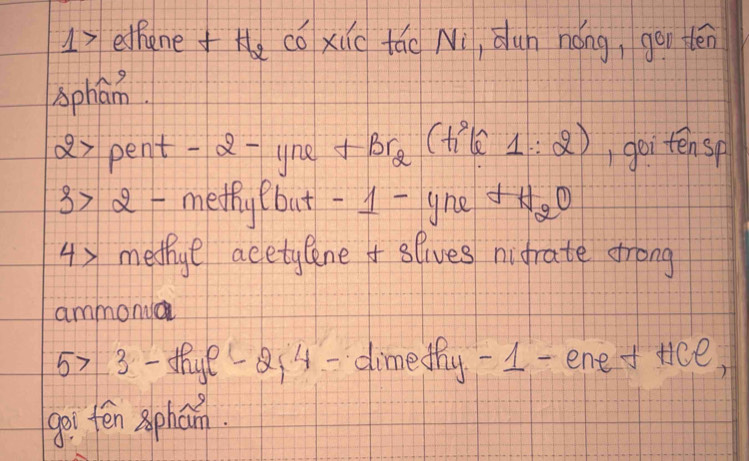 1> ethene + H₂ có xúc tác Ni, đun nóng, gọi tên
sphẩm.
2> pent - 2 - yne + Br₂ (tỉ lệ 1:2), gọi tên sp
3> 2 - methylbut - 1 - yne + H₂O
4> methyl acetylene + slives nitrate trong
ammonia
5> 3 - thyl - 2,4 - dimethy - 1 - ene + HCl,
gọi tên sphẩm.